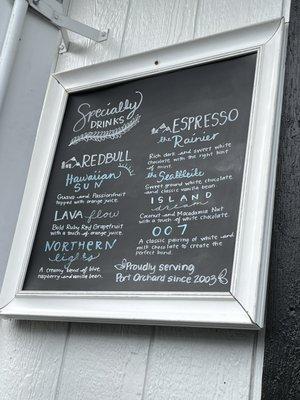 Specialty
DRINKS
REDBULL
Hawaiian
SUN
Guava and Passionfruit
topped with orange juice.
LAVA flow
Bold Ruby Red Grapefruit
with a touch of orange juice.
NORTHERN
lights
A creamy blend of blue
raspberry and vanilla bean.
ESPRESSO
the Rainier
Rich dark and sweet white
chocolate with the right hint
of mint.
the Seattleite
Sweet ground white chocolate
and classic vanilla bean.
ISLAND
dream
Coconut and Macadamia Nut
with a touch of white chocolate.
007
A classic pairing of white and
milk chocolate to create the
perfect bond.
Proudly serving
Port Orchard since 2003